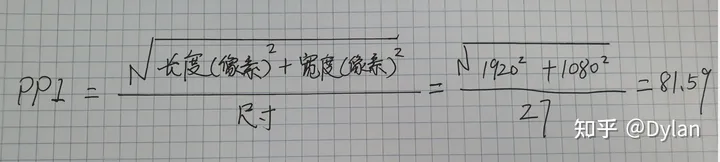 PPI = √长度(像素)²+宽度(像素)² / 尺寸 = √1920²+1080² / 27 = 81.59
知乎 @Dylan